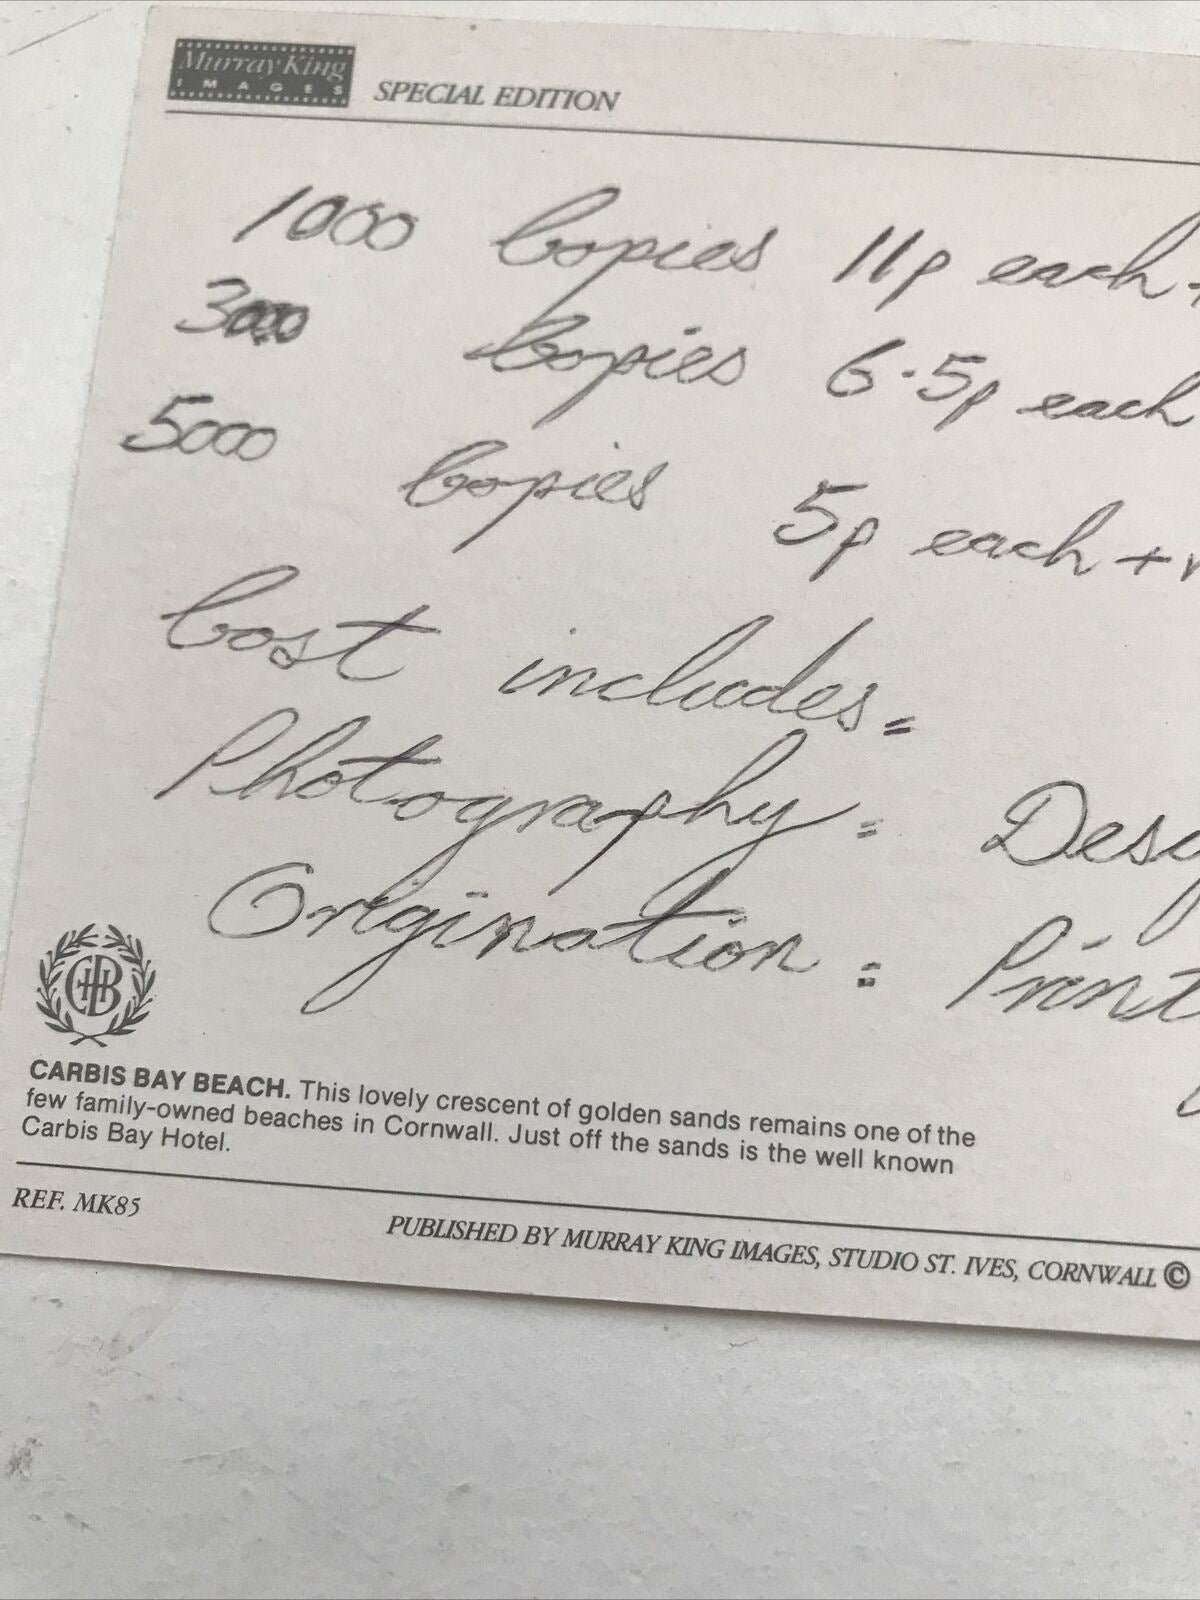 Murray King
IMAGES
SPECIAL EDITION
1000 Copies 11p each +
3000 Copies 6.5p each
5000 Copies 5p each +
Cost includes =
Photography = Desig
Origination = Print
CHB
CARBIS BAY BEACH. This lovely crescent of golden sands remains one of the
few family-owned beaches in Cornwall. Just off the sands is the well known
Carbis Bay Hotel.
REF. MK85
PUBLISHED BY MURRAY KING IMAGES, STUDIO ST. IVES, CORNWALL ©